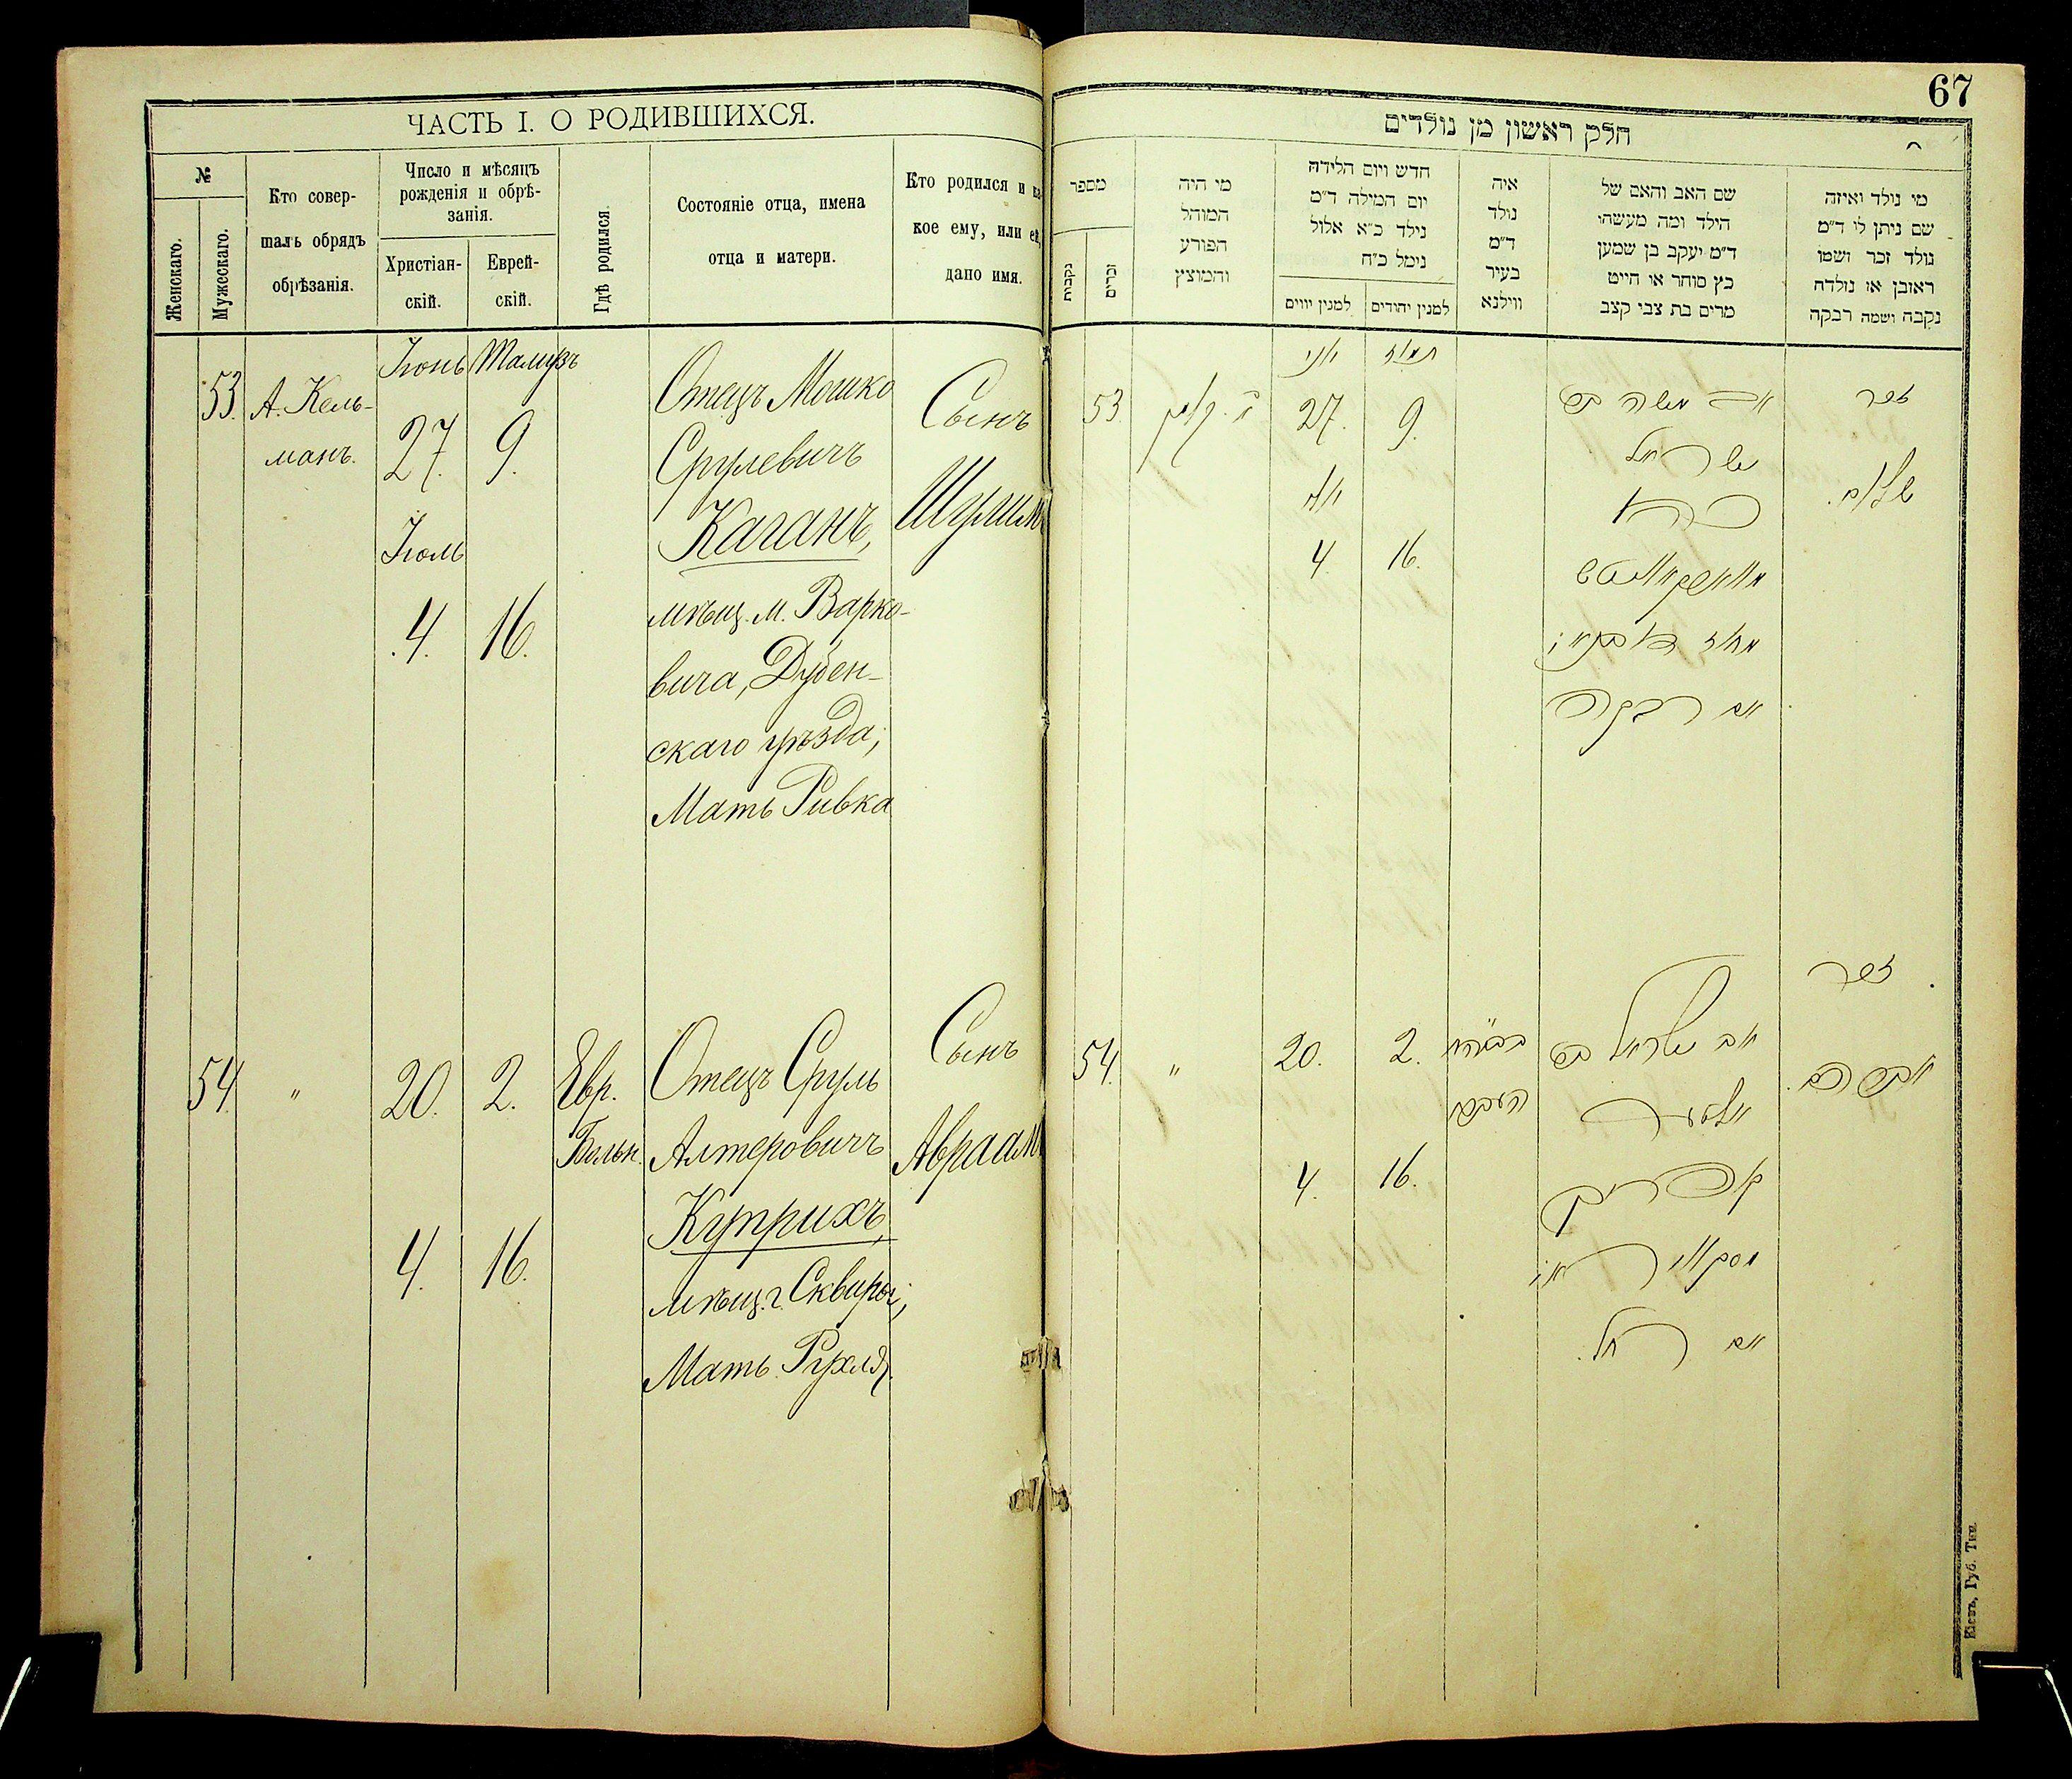 ЧАСТЬ I. О РОДИВШИХСЯ.
№
Женскаго.
Мужескаго.
Кто совер-
шалъ обрядъ
обрѣзанія.
Число и мѣсяцъ
рожденія и обрѣ-
занія.
Христіан-
скій.
Еврей-
скій.
Гдѣ родился.
Состояніе отца, имена
отца и матери.
Кто родился и ка
кое ему, или ей,
дано имя.
53.
А. Кель-
манъ.
Іюнь
27.
Іюль
4.
Тамузъ
9.
16.
Отецъ Мошко
Срулевичъ
Каганъ,
мѣщ. м. Варко-
вича, Дубен-
скаго уѣзда;
Мать Ривка
Сынъ
Шулимъ
54.
"
20.
4.
2.
16.
Евр.
Больн.
Отецъ Сруль
Алтеровичъ
Кутрихъ,
мѣщ. г. Сквиры;
Мать Рухля.
Сынъ
Авраамъ
67
חלק ראשון מן נולדים
מספר
נקבות
זכרים
מי היה
המוהל
הפורע
והמוצץ
חדש ויום הלידה
יום המילה ד"מ
נילד כ"א אלול
נימל כ"ח
למנין יווים
למנין יהודים
איה
נולד
ד"מ
בעיר
ווילנא
שם האב והאם של
הילד ומה מעשהו
ד"מ יעקב בן שמען
כץ סוחר או חייט
מרים בת צבי קצב
מי נולד ואיזה
שם ניתן לו ד"מ
נולד זכר ושמו
ראובן או נולדה
נקבה ושמה רבקה
53.
יוני
27.
יולי
4.
תמוז
9.
16.
אב משה בן
ישראל
אם רבקה
זכר
שלום.
54.
"
20.
4.
2.
16.
אב ישראל בן
אלטער
אם רחל.
זכר
אברהם.
Кіевъ, Губ. Тип.